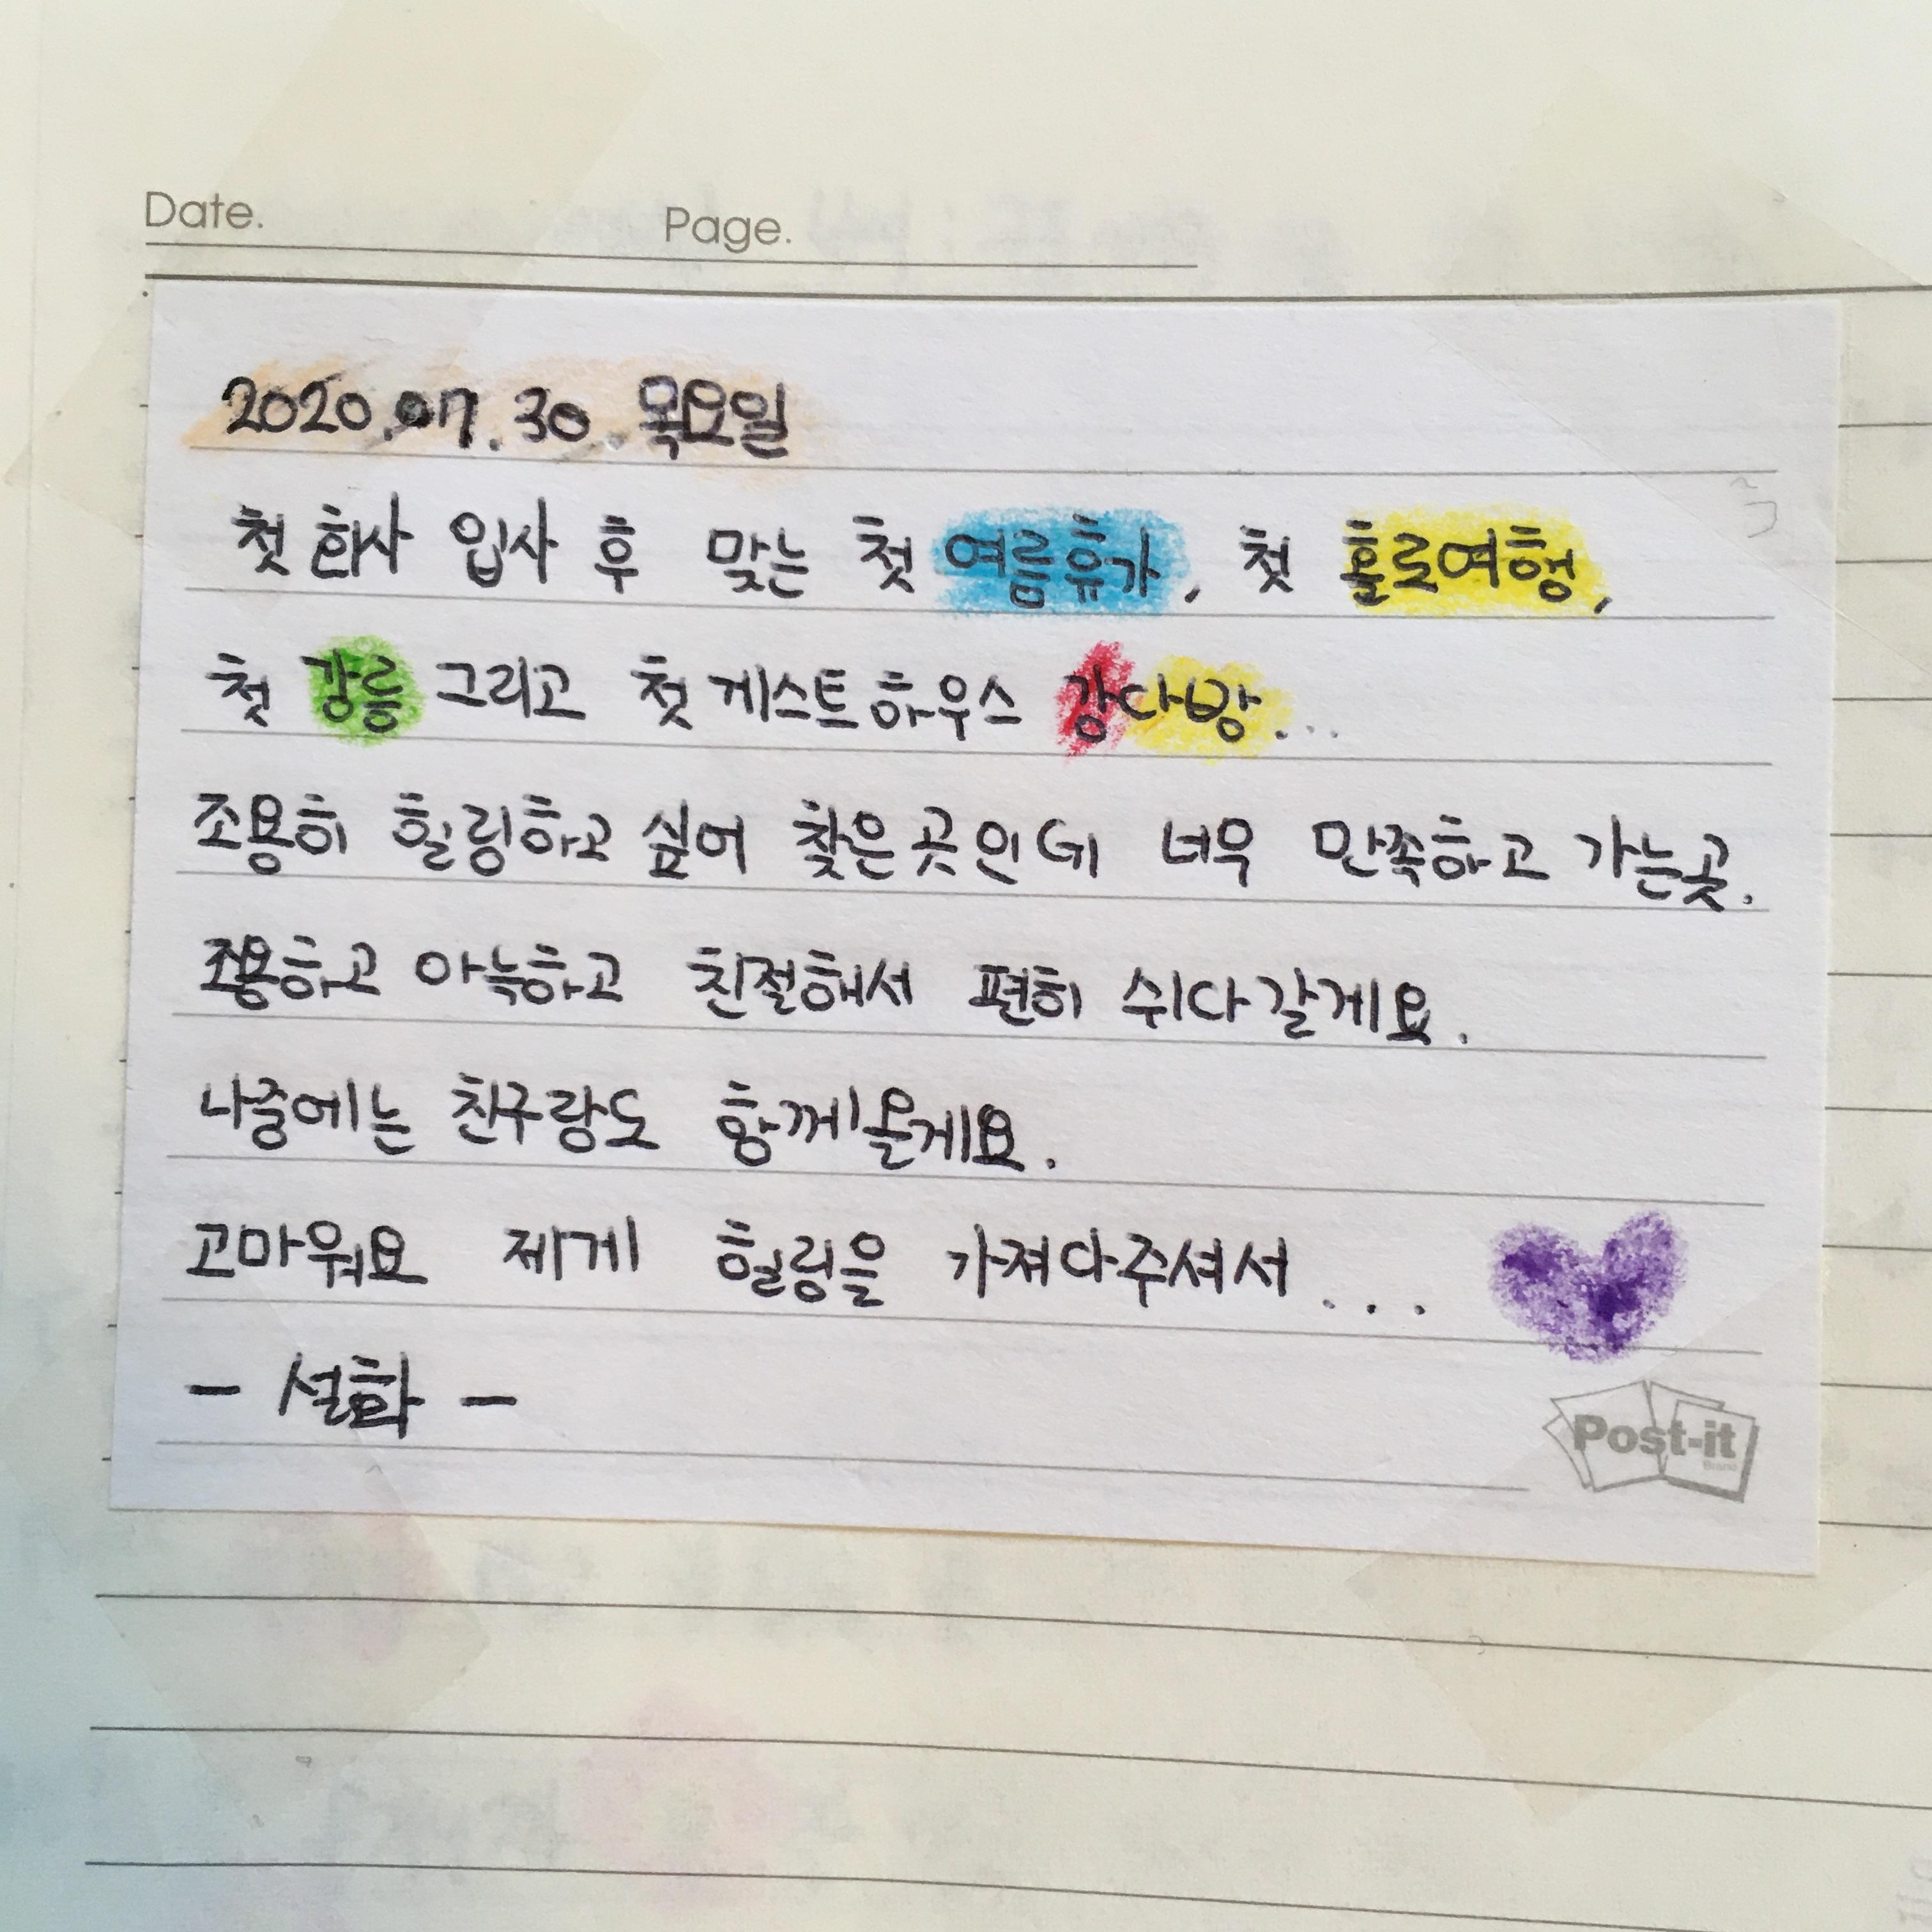 Date. Page.
2020.07.30. 목요일
첫 회사 입사 후 맞는 첫 여름휴가, 첫 홀로여행,
첫 강릉 그리고 첫 게스트하우스 강다방...
조용히 힐링하고 싶어 찾은 곳인데 너무 만족하고 가는곳.
조용하고 아늑하고 친절해서 편히 쉬다갈게요.
나중에는 친구랑도 함께올게요.
고마워요 제게 힐링을 가져다주셔서...
- 설화 -
Post-it
Brand